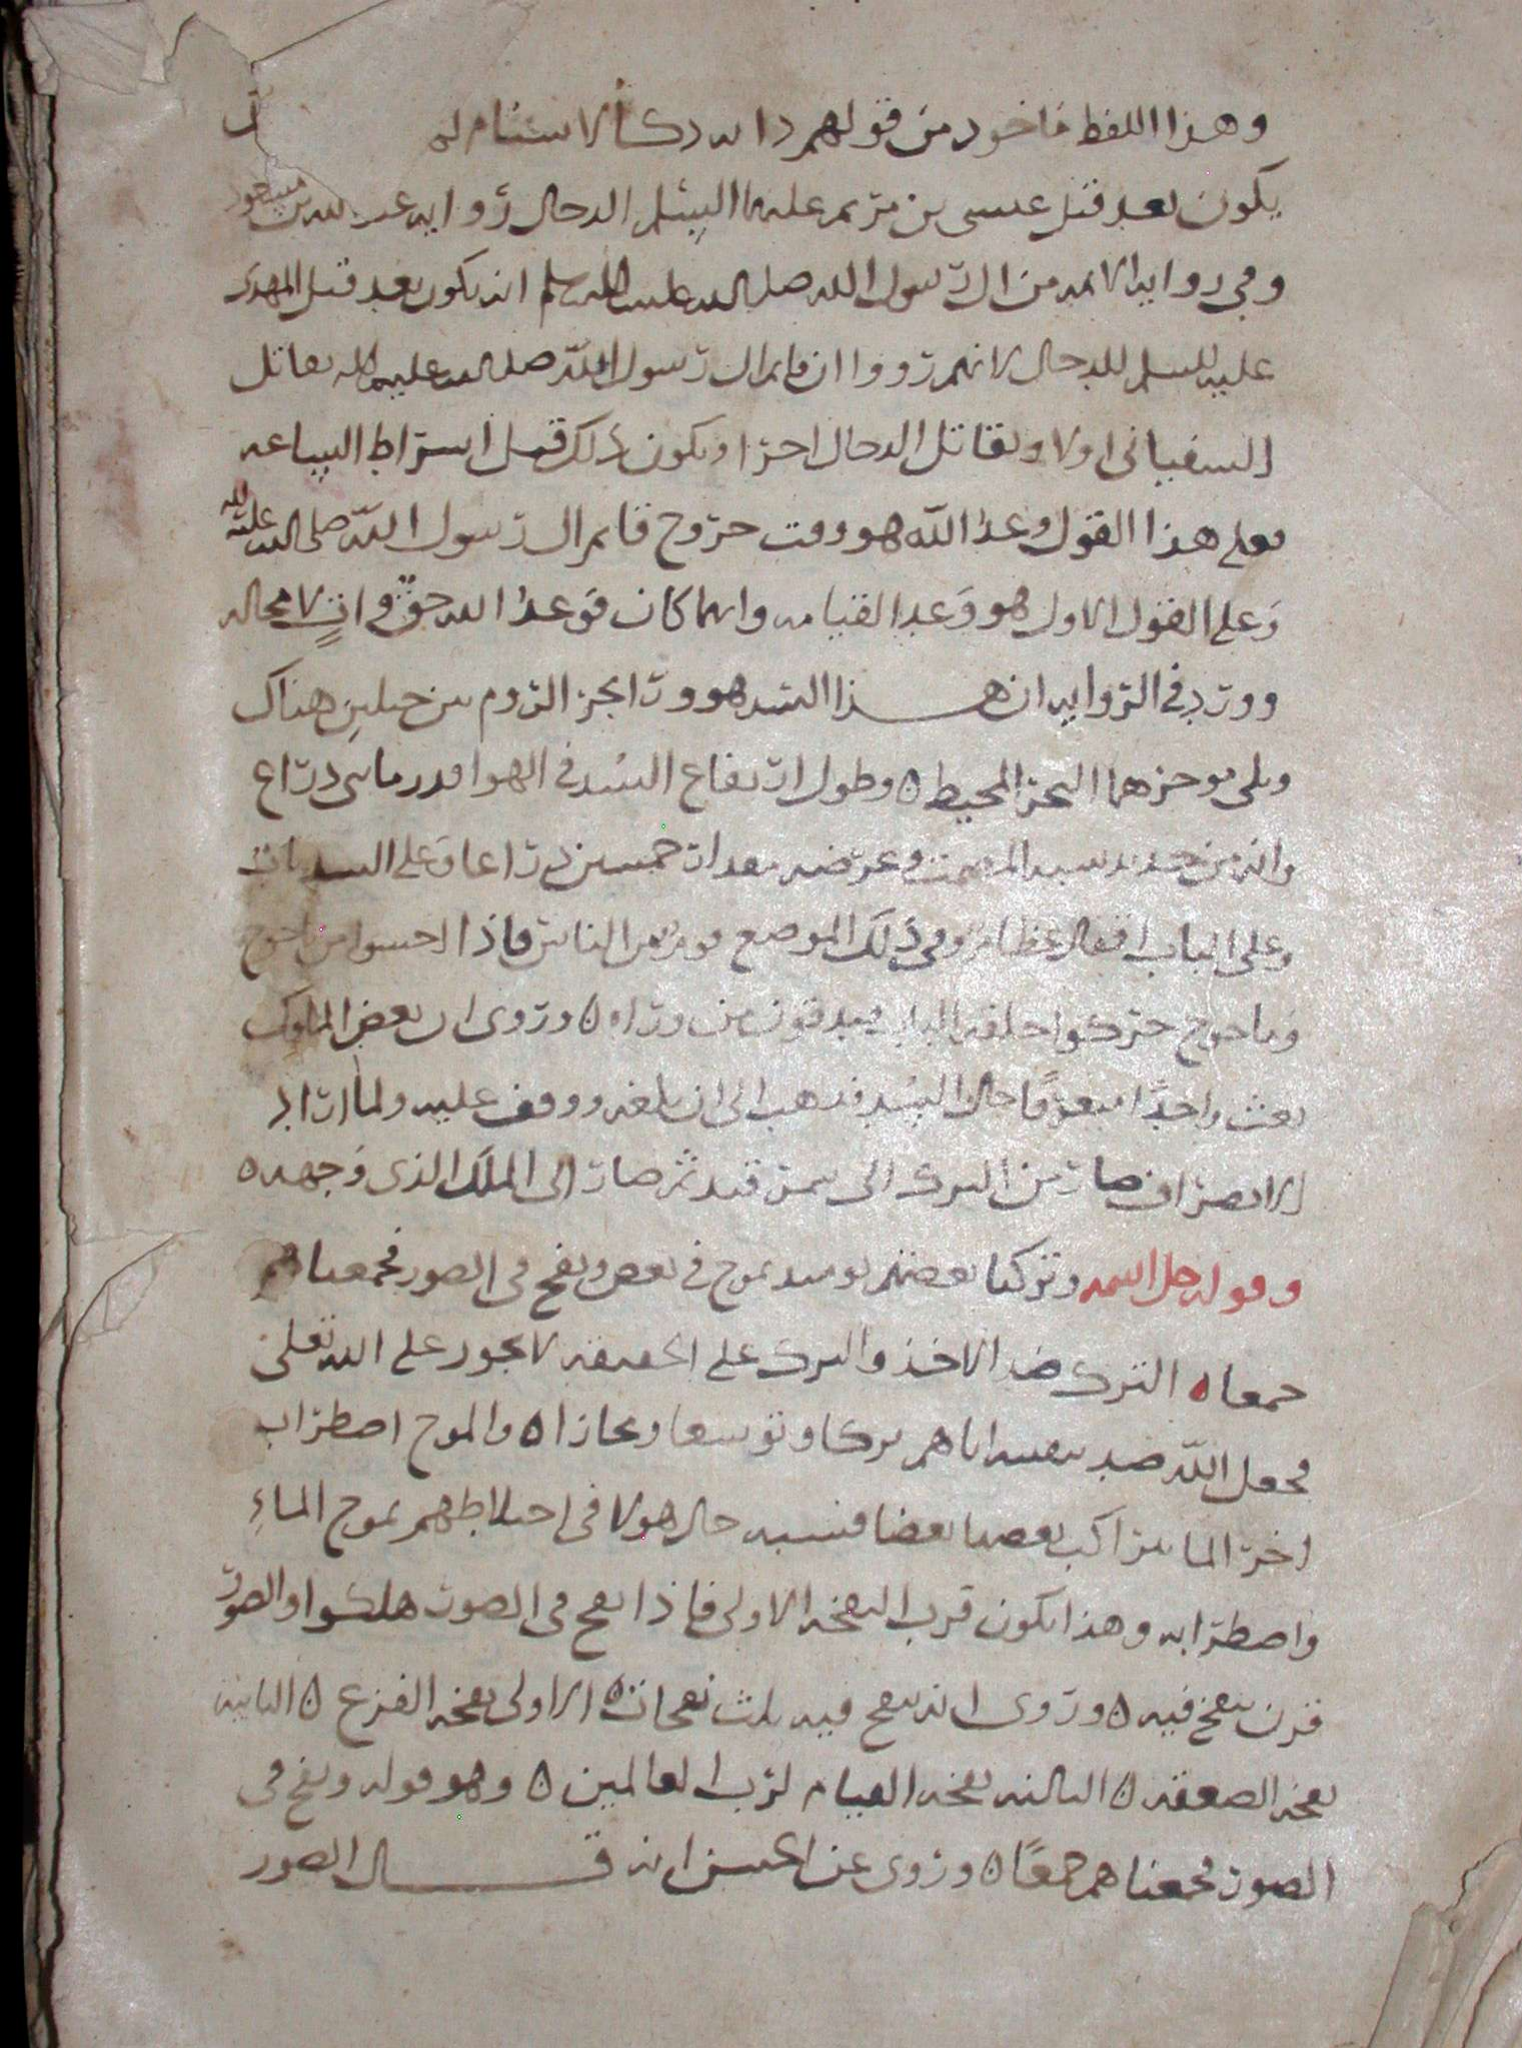 وهذا اللفظ ماخوذ من قولهم دابه دكا لا سنام لها
يكون بعد قتل عيسى بن مريم عليه السلم الدجال رواية عبد الله بن مسعود
وفي رواية الائمة من ال رسول الله صلى الله عليه وسلم انه يكون بعد قتل المهدى
عليه السلم للدجال لانهم رووا ان قايم ال رسول الله صلى الله عليه واله يقاتل
السفيانى اولا ويقاتل الدجال اخرا ويكون ذلك قبل اشراط الساعه
فعلى هذا القول وعد الله هو وقت خروج قايم ال رسول الله صلى الله عليه واله
وعلى القول الاول هو وعد القيامه وايهما كان فوعد الله حق وات لا محاله
وورد في الروايه ان هذا السد هو ورا بحر الروم بين جبلين هناك
ويلى موخرهما البحر المحيط ٥ وطول ارتفاع السد في الهوا قدر مايتى ذراع
وانه من حديد شبه المصمت وعرضه مقدار خمسين ذراعا وعلى السد باب
وعلى الباب اقفال عظام وفي ذلك الموضع قوم من الناس فاذا احسوا من ياجوج
وماجوج حركوا حلقه الباب فيدقون من وراه ٥ وروى ان بعض الملوك
بعث واحدًا ليعرف حال السد فذهب الى ان بلغه ووقف عليه ولما اراد
الانصراف صار من الترك الى سمرقند ثم صار الى الملك الذى وجهه ٥
وقوله جل اسمه وتركنا بعضهم يوميذ يموج في بعض ونفخ في الصور فجمعناهم
جمعا ٥ الترك ضد الاخذ والترك على الحقيقه لا يجوز على الله تعلى
فجعل الله ضد بعضه اياهم تركا وتوسعا ومجازا ٥ والموج اضطراب
اخر الما بتراكب بعضها بعضا فشبه حال هولا في اختلاطهم بموج الماءِ
واضطرابه وهذا يكون قرب النفخه الاولى فاذا نفخ في الصور هلكوا والصور
قرن ينفخ فيه ٥ وروى انه ينفخ فيه ثلث نفخات ٥ الاولى نفخه الفزع ٥ الثانيه
نفخه الصعقه ٥ الثالثه نفخه القيام لرب العالمين ٥ وهو قوله ونفخ في
الصور فجمعناهم جمعًا ٥ وروى عن الحسن انه قال الصور